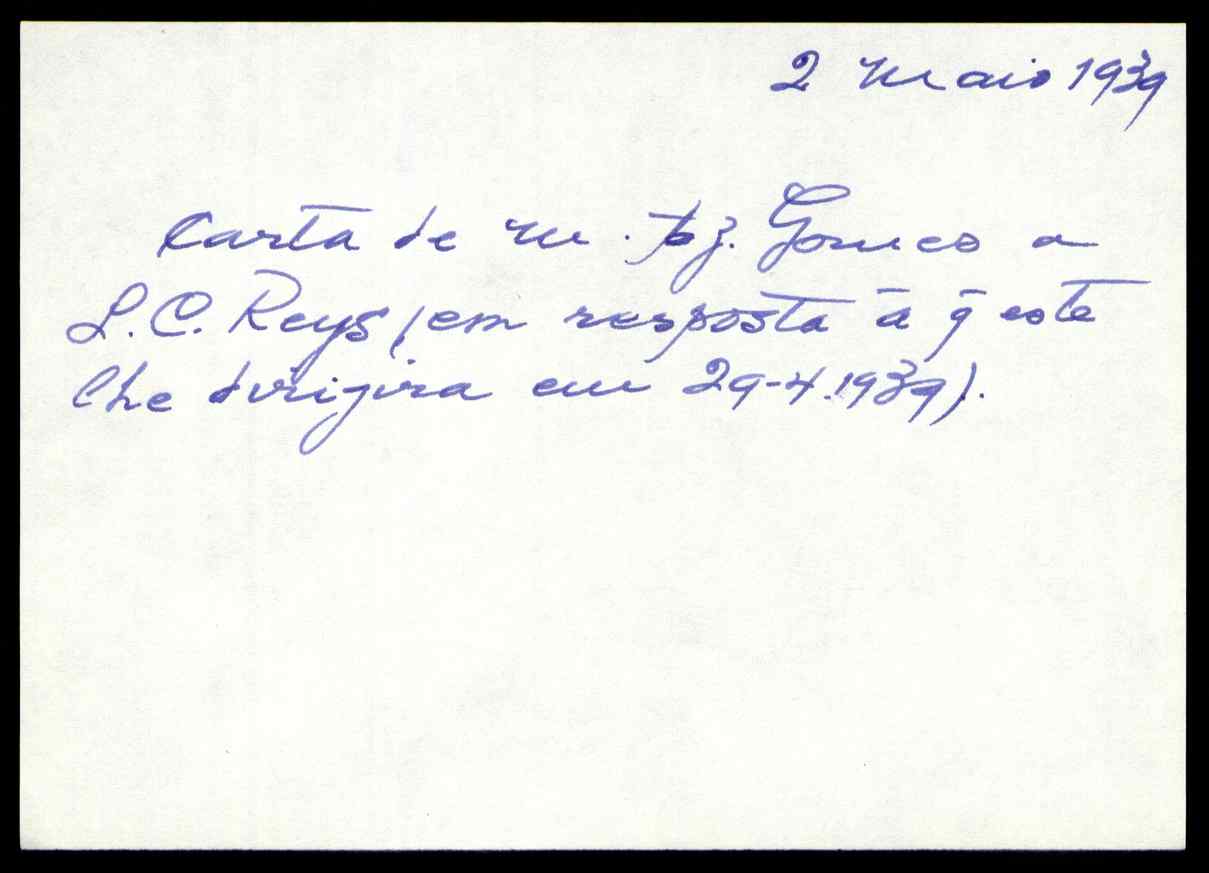 2 Maio 1939
Carta de M. Tz. Gomes a
L. C. Reys (em resposta à q̄ este
lhe dirigira em 29-4.1939).